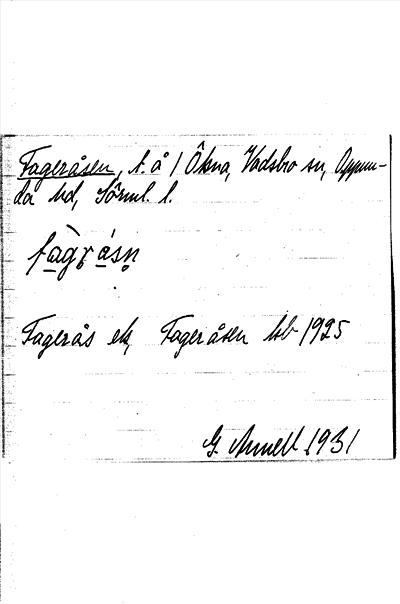 Fageråsen, t. å 1 Ökna, Vadsbro sn, Oppun-
da hd, Sörml. l.
fàgrásn̥
Fagerås ek, Fageråsen hb 1925
G. Annell 1931